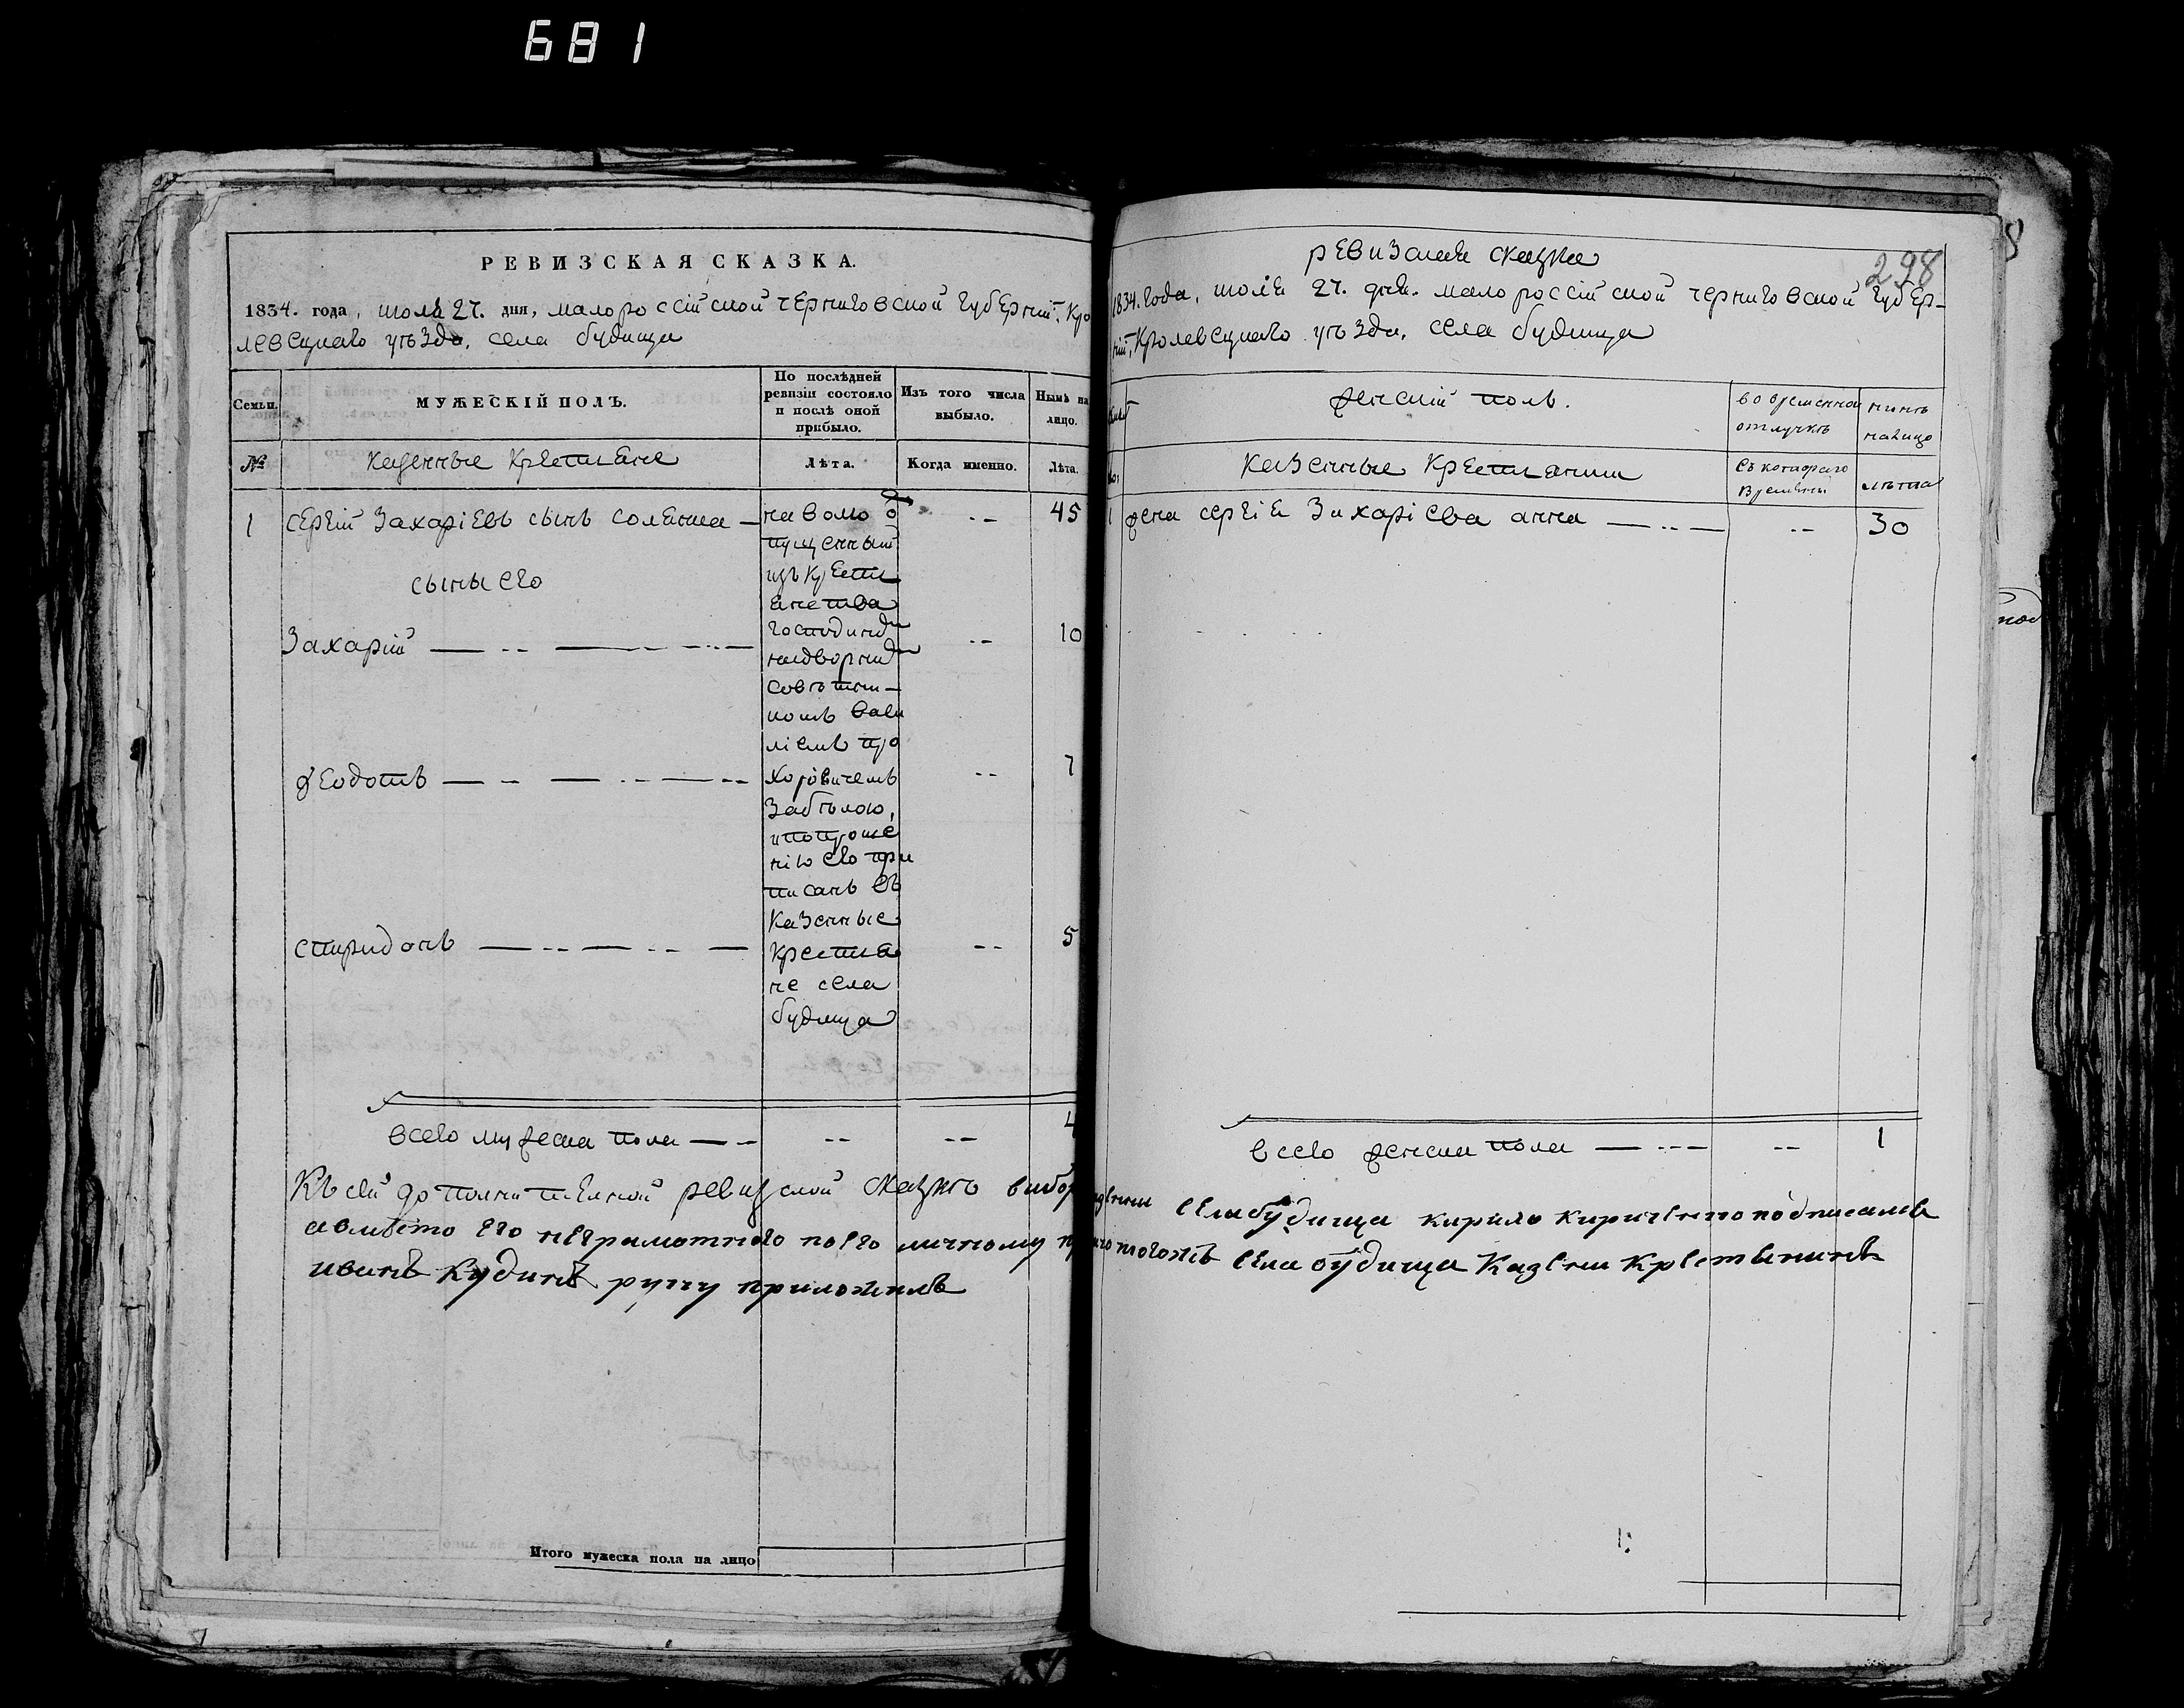 681
РЕВИЗСКАЯ СКАЗКА.
1834. года, июля 27. дня, малороссійской черниговской губерніи, Кро
левецкаго уѣзда, села будища
Семьи.
МУЖЕСКІЙ ПОЛЪ.
По послѣдней ревизіи состояло и послѣ оной прибыло.
Изъ того числа выбыло.
Нынѣ на лицо.
№
казенные крестьяне
Лѣта.
Когда именно.
Лѣта.
1 сергій Захаріевъ сынъ соленка — -- 45
сыны его
Захарій — -- — -- 10
Ѳеодотъ — -- — -- 7
спиридонъ — -- — -- 5
на волю о
пущенный
изъ крестья
нства
господином
надворным
совѣтни-
комъ Васи
ліемъ про
хоровичемъ
Забѣлою,
и по проше
нію его при
писанъ въ
казенные
крестья
не села
будища
всего мужеска пола — -- -- -- 4
Къ сей дополнительной ревизской сказкѣ выбор
а вместо его неграмотного по его личному
иванъ Кудинъ руку приложилъ
Итого мужеска пола на лицо
298
ревизская сказка
1834. года, июля 27. дня. малороссійской черниговской губер-
ніи, Кролевецкаго уѣзда, села будища
женскій полъ.
во временной отлучкѣ
нынѣ налицо
казенные крестьянки
съ котораго времени
лѣта
1 жена сергія Захаріева анна — -- — -- 30
всего женска пола — --- -- 1
села будища кирило кириченко подписался
тогожъ села будища Казенни крестьянинъ